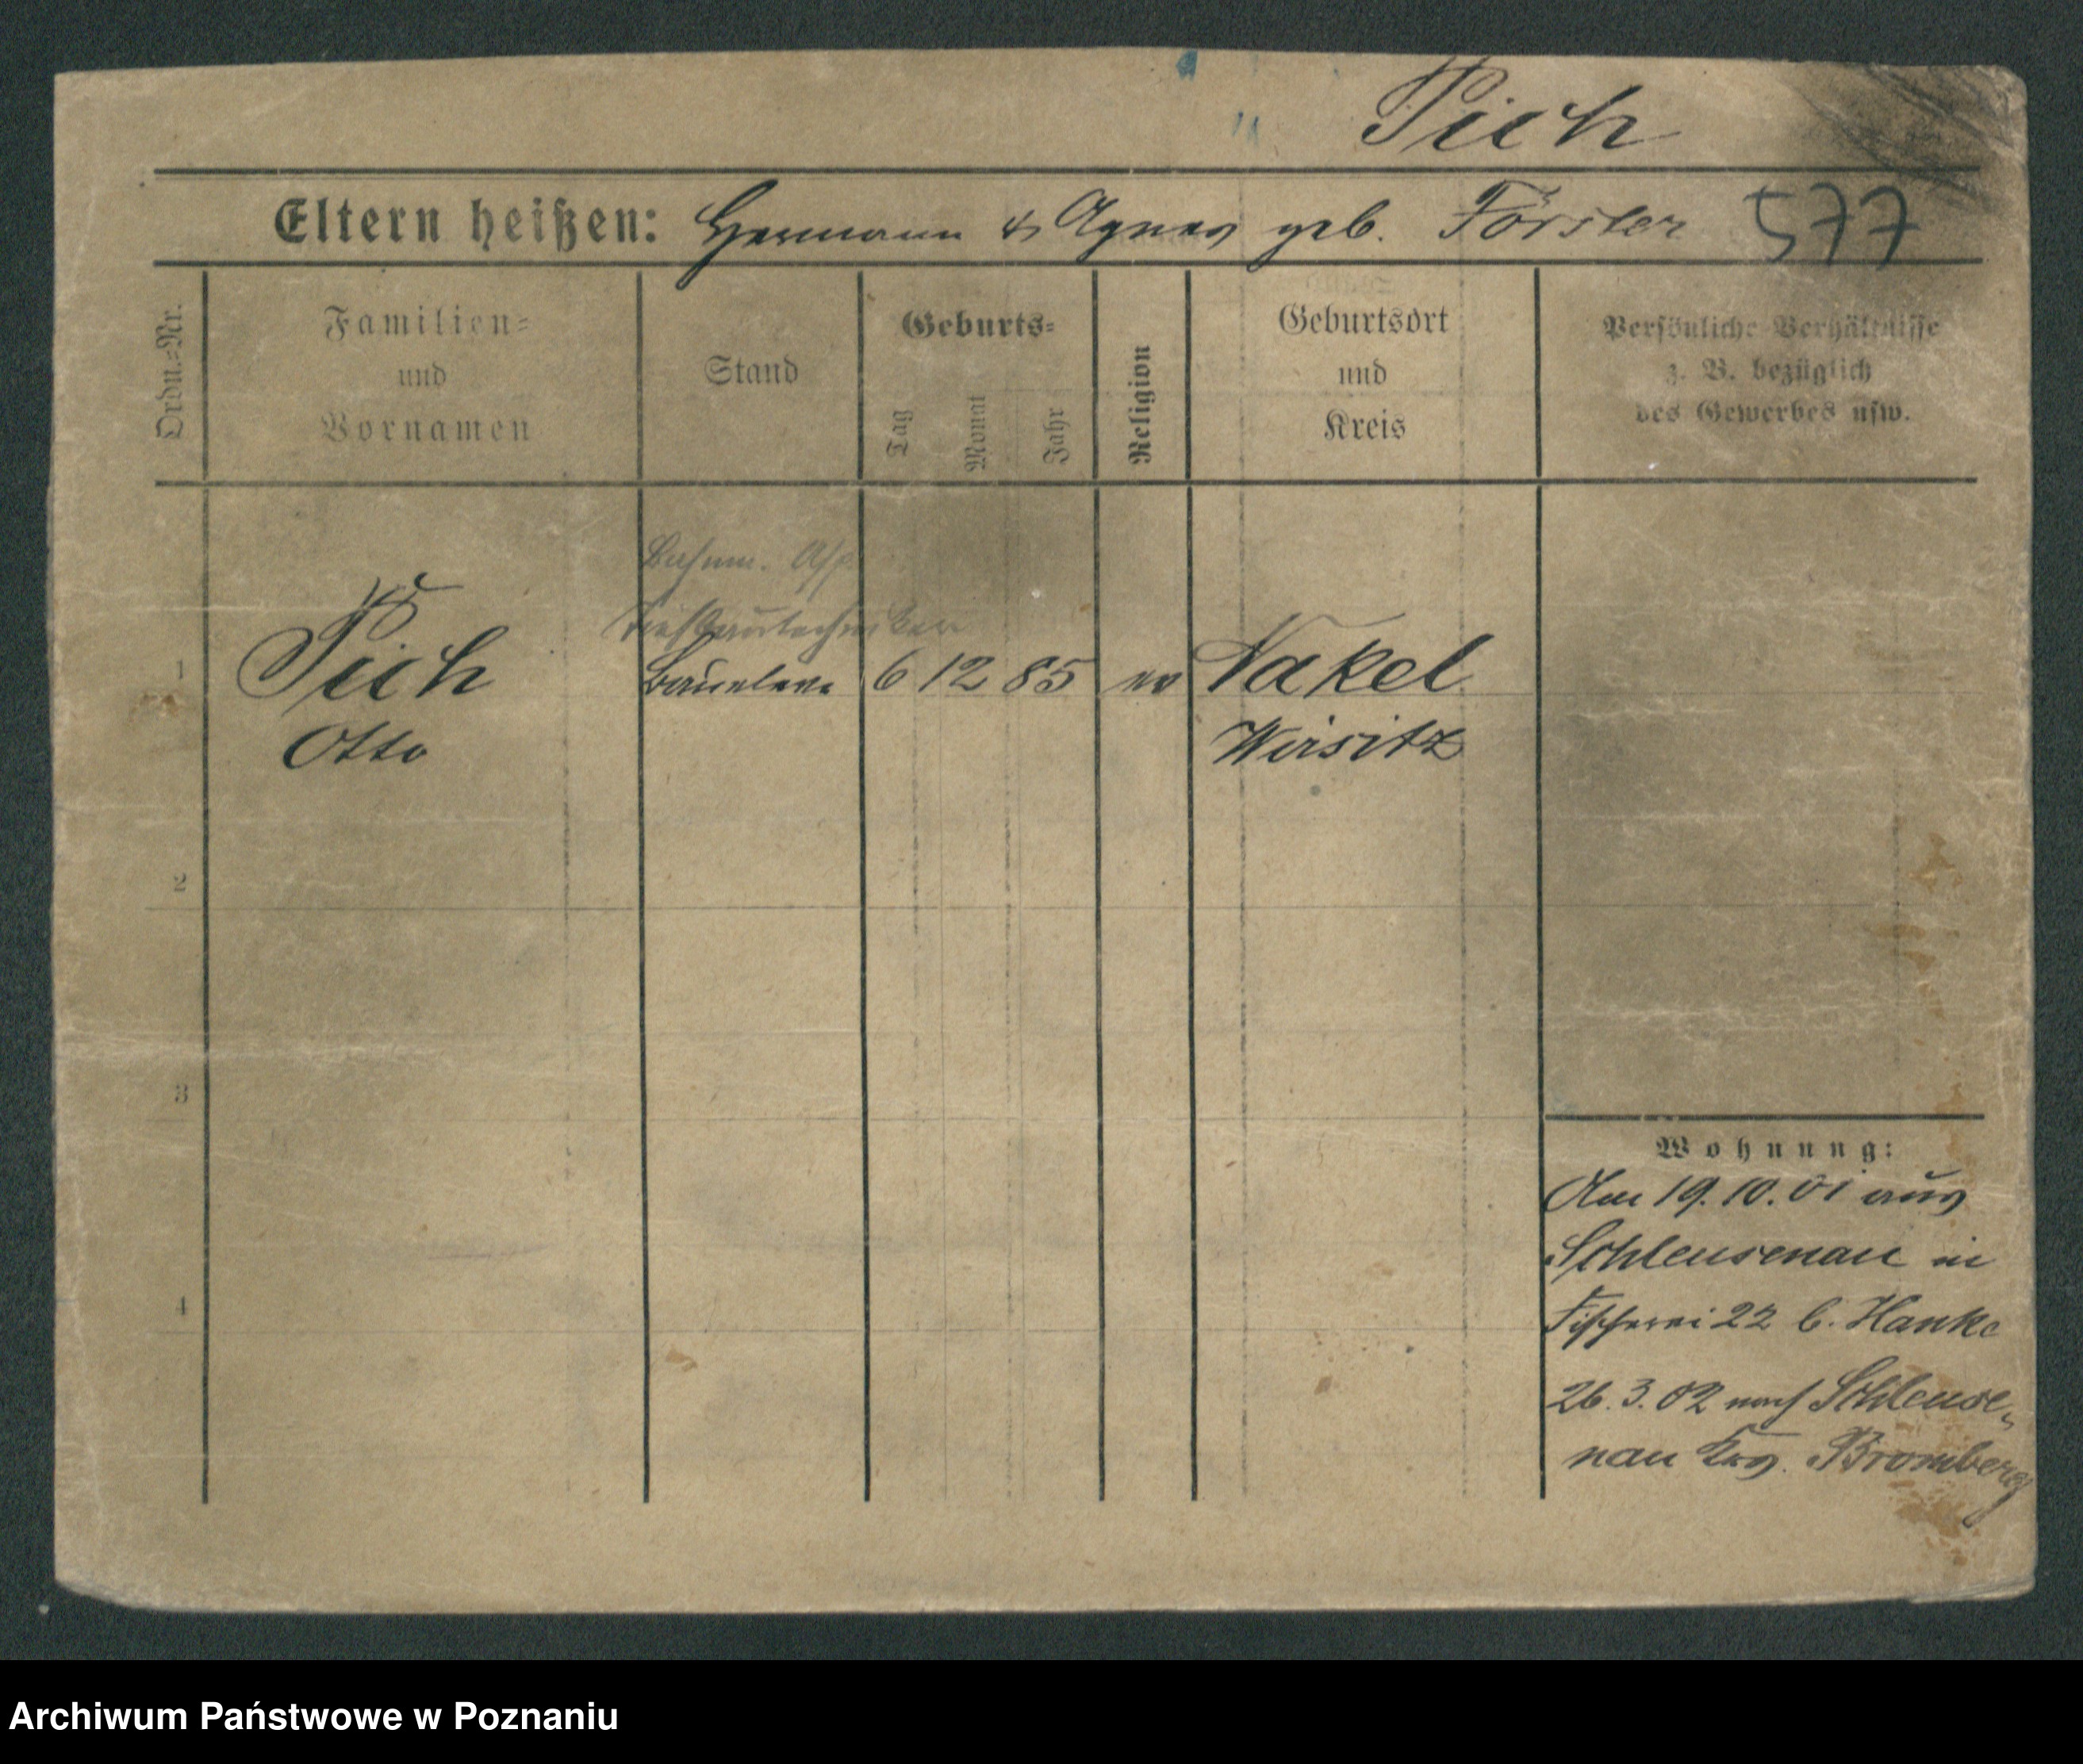 Pich
Eltern heißen: Hermann & Agnes geb. Förster 577
Ordn.-Nr.
Familien-
und
Vornamen
Stand
Geburts-
Tag
Monat
Jahr
Religion
Geburtsort
und
Kreis
Persönliche Verhältnisse
z. B. bezüglich
des Gewerbes usw.
Tiefbautechniker
1 Pich Baueleve 6 12 85 ev Nakel
Otto Wirsitz
2
3
4
Wohnung:
Am 19.10.01 aus
Schleusenau in
Fischerei 22 b. Hanke
26.3.02 nach Schleuse-
nau Krs. Bromberg
Archiwum Państwowe w Poznaniu